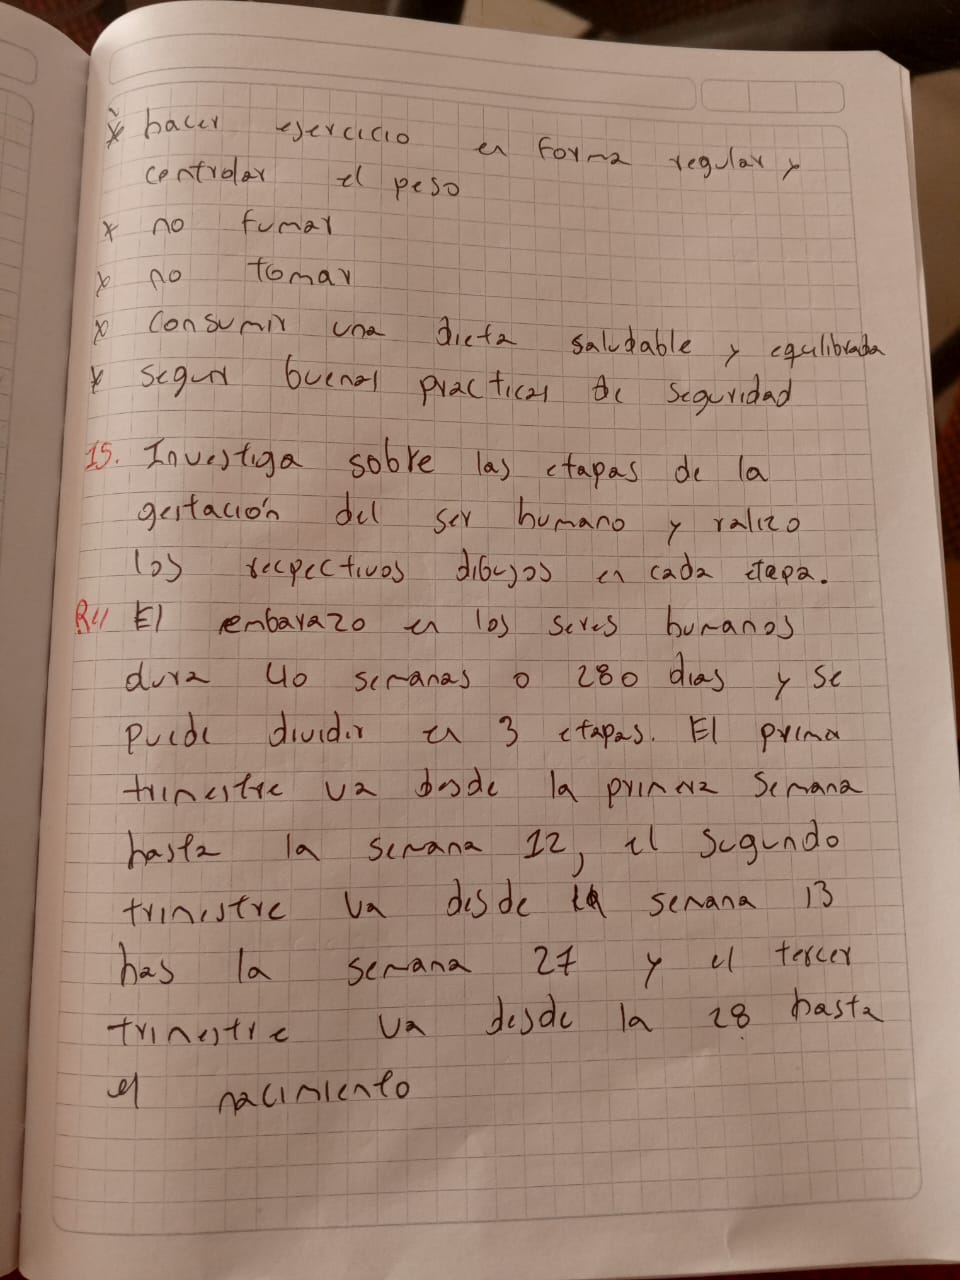 * hacer ejercicio en forma regular y
controlar el peso
* no fumar
* no tomar
* consumir una dieta saludable y equilibrada
* seguir buenas practicas de seguridad
15. Investiga sobre las etapas de la
gestación del ser humano y ralizo
los recpectivos dibujos en cada etapa.
R// El embarazo en los seres humanos
dura 40 semanas o 280 dias y se
puede dividir en 3 etapas. El primer
trimestre va desde la primera semana
hasta la semana 12, el segundo
trimestre va desde la semana 13
has la semana 27 y el tercer
trimestre va desde la 28 hasta
el nacimiento